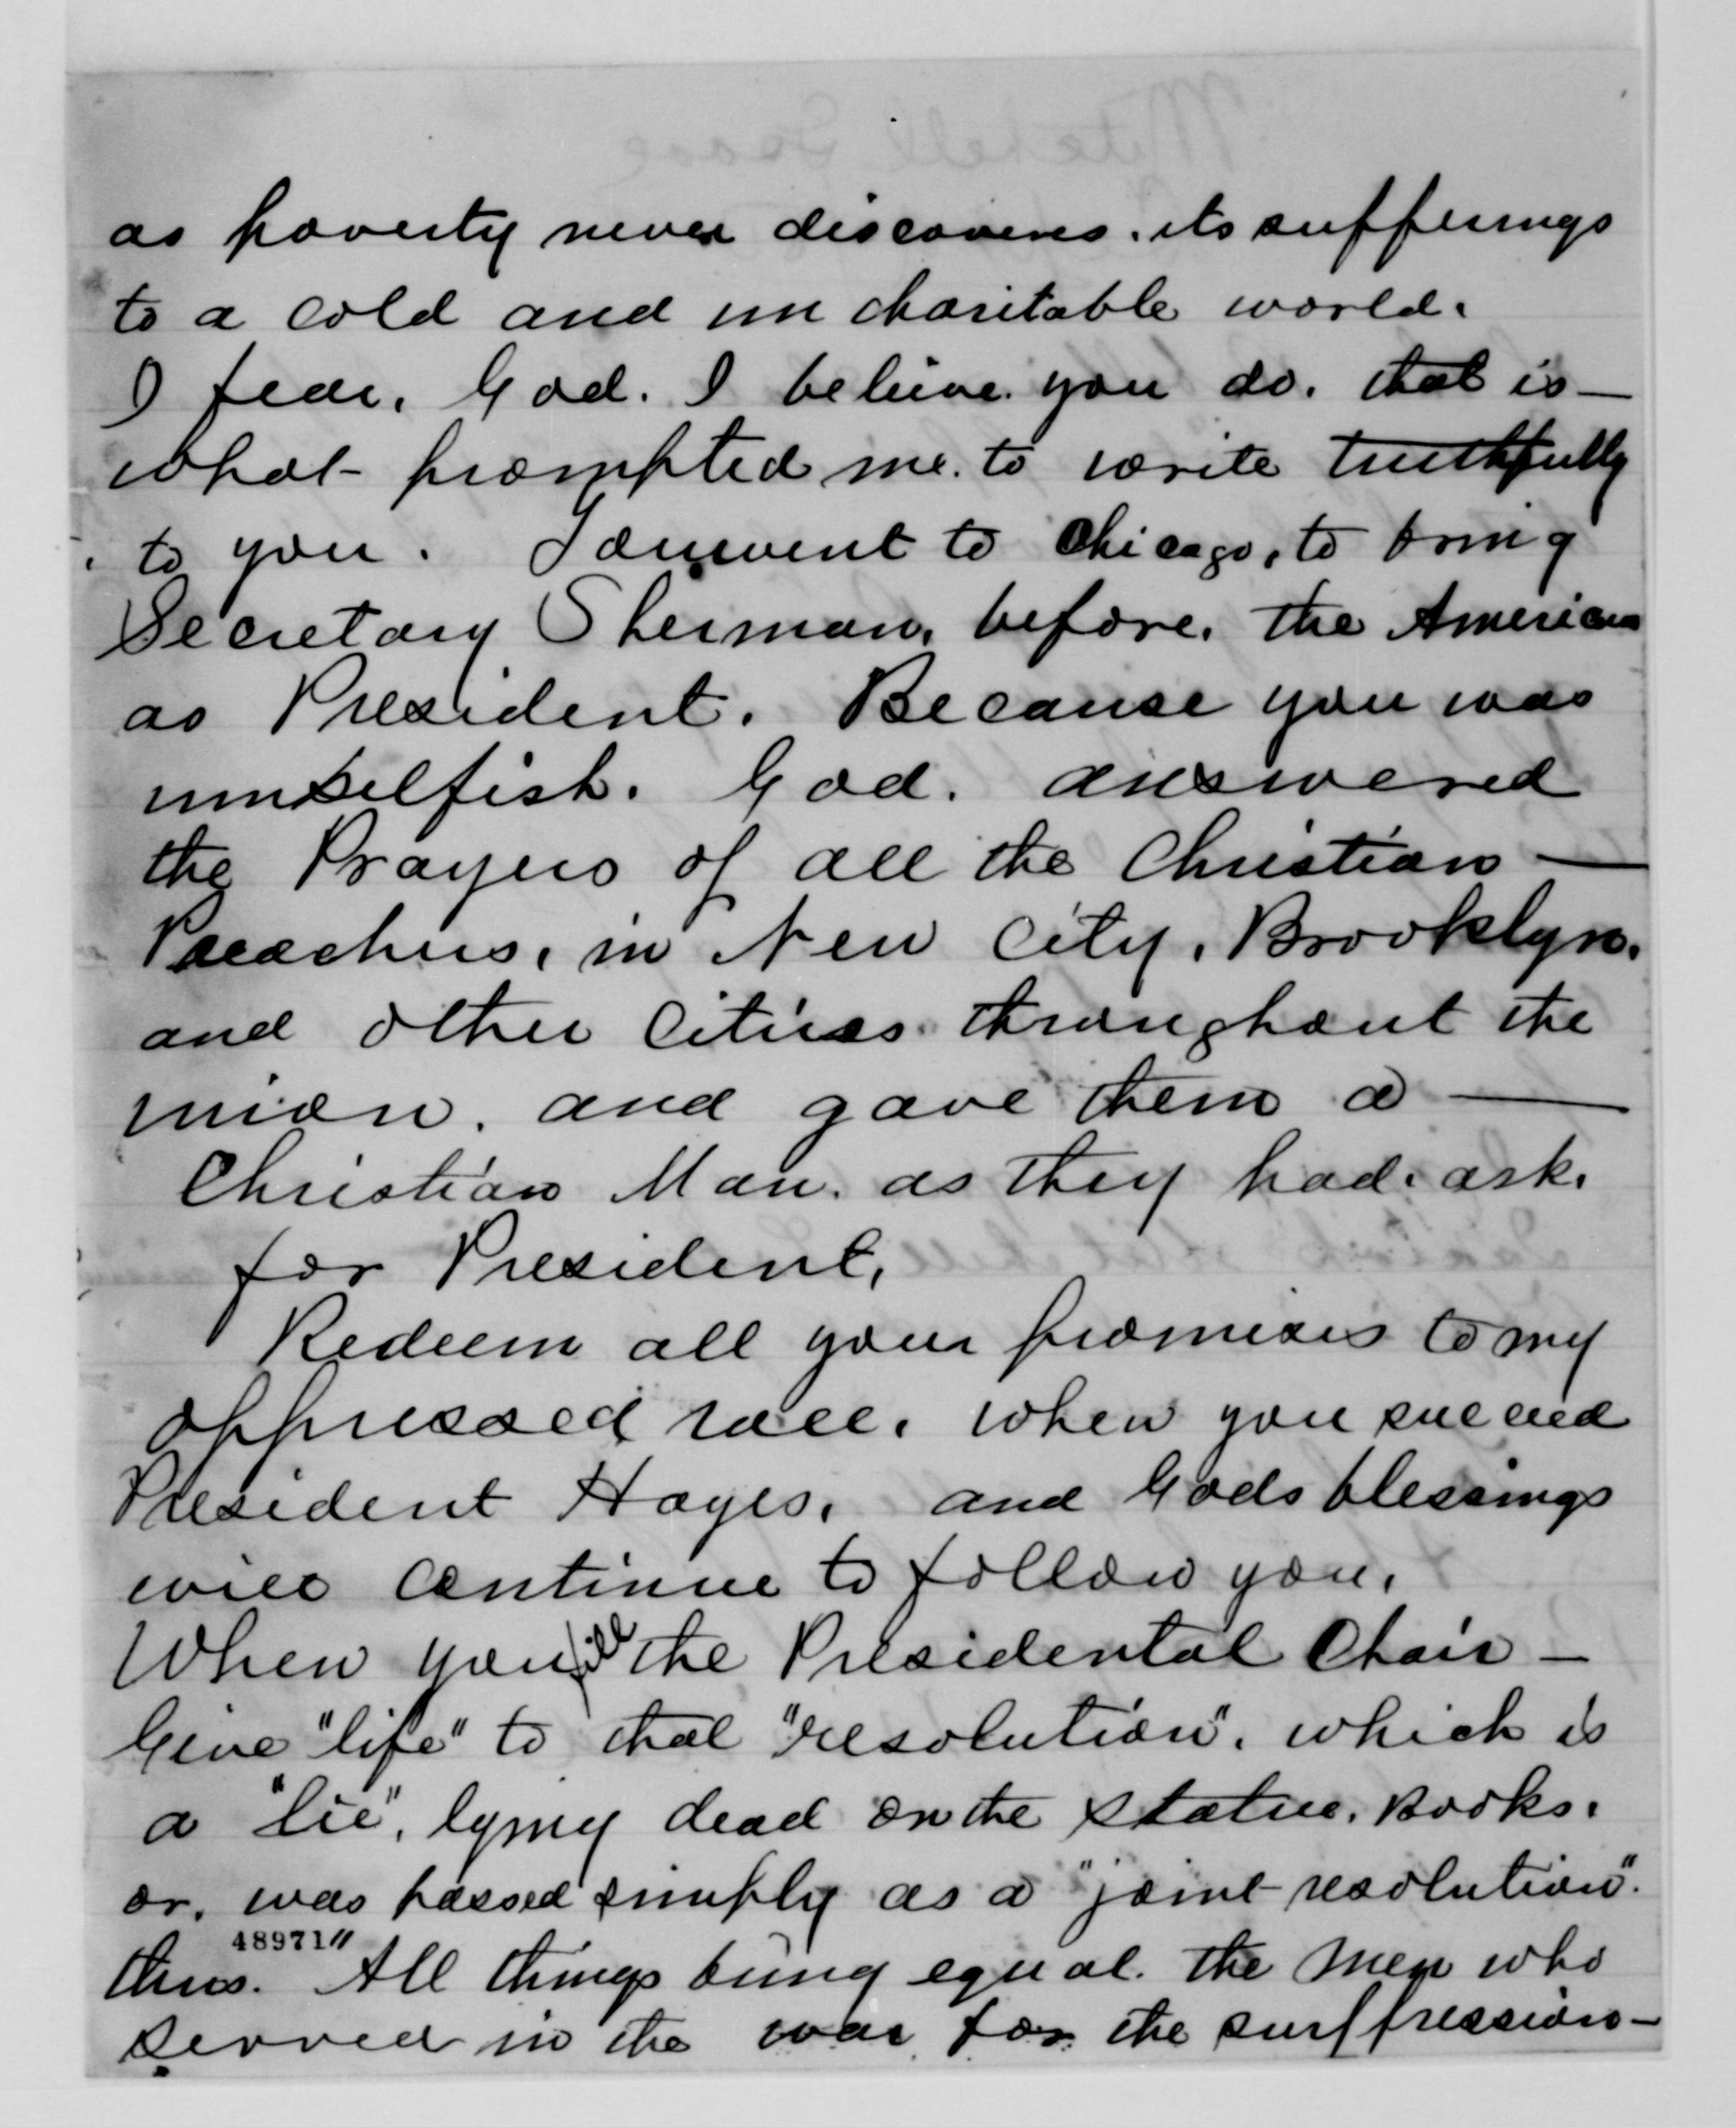 as poverty never discoveres. its sufferings
to a cold and un charitable world.
I fear. God. I believe. you do. that is —
what prompted me. to write truthfully
to you. I went to Chicago, to bring
Secretary Sherman, before. the American
as President. Because you was
unselfish. God. answered
the Prayers of all the Christian —
Preachers, in New City, Brooklyn.
and other Cities throughout the
union. and gave them a —
Christian Man. as they had. ask.
for President,
Redeem all your promises to my
oppressed race. when you succeed
President Hayes, and Gods blessings
will continue to follow you,
When you fill the Presidental Chair —
Give "life" to that "resolution". which is
a "lie", lying dead on the statue. Books.
or. was passed simply as a "joint-resolution".
48971
thus. "All things being equal. the men who
served in the war for the surppression —